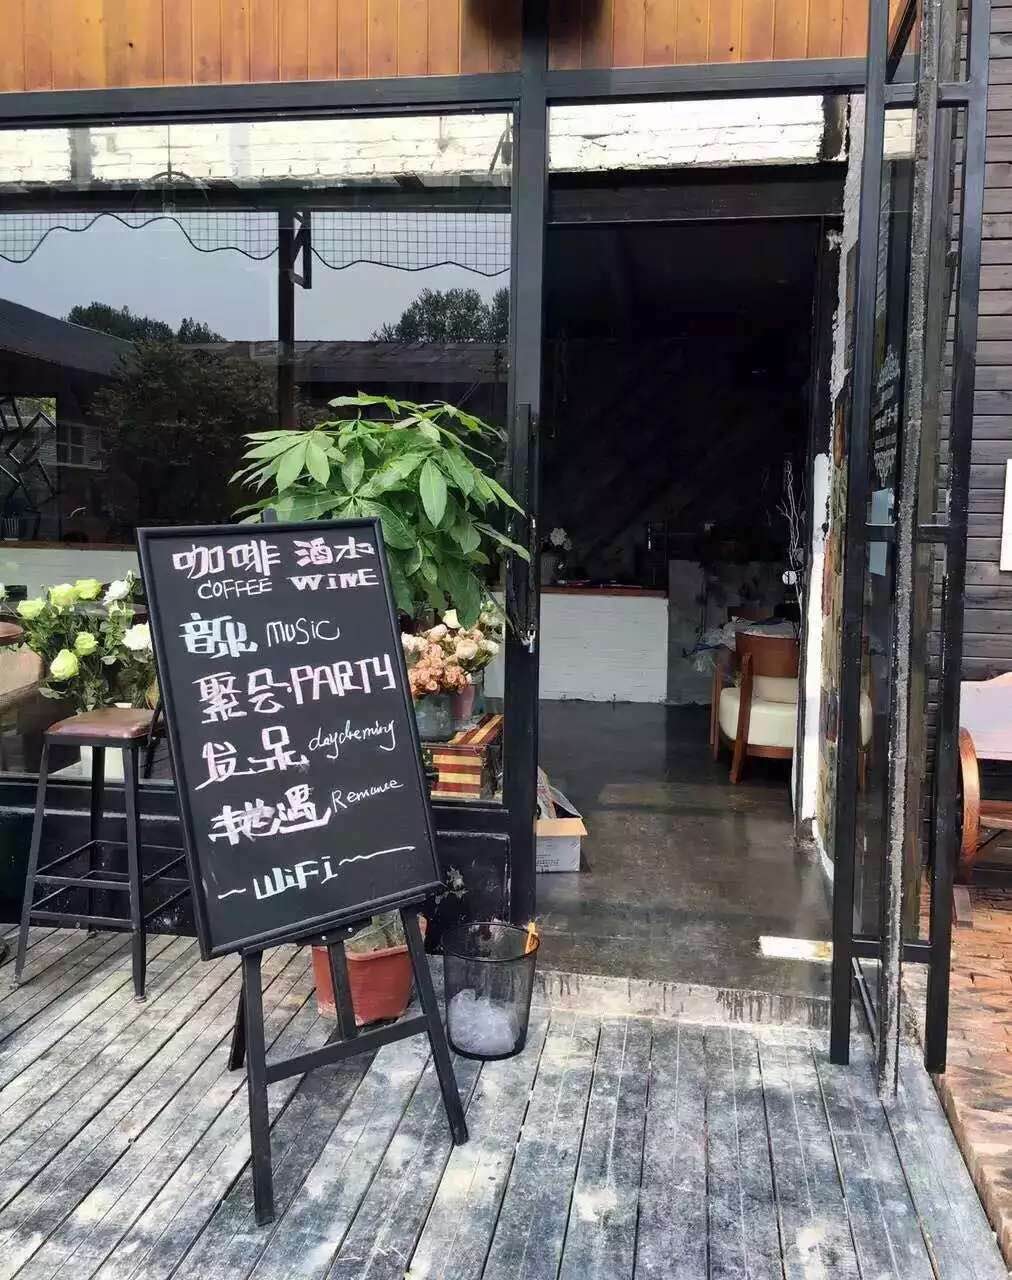 咖啡 酒水
COFFEE WINE
音乐 MUSIC
聚会·PARTY
发呆 daydreming
艳遇 Remance
~WiFi~